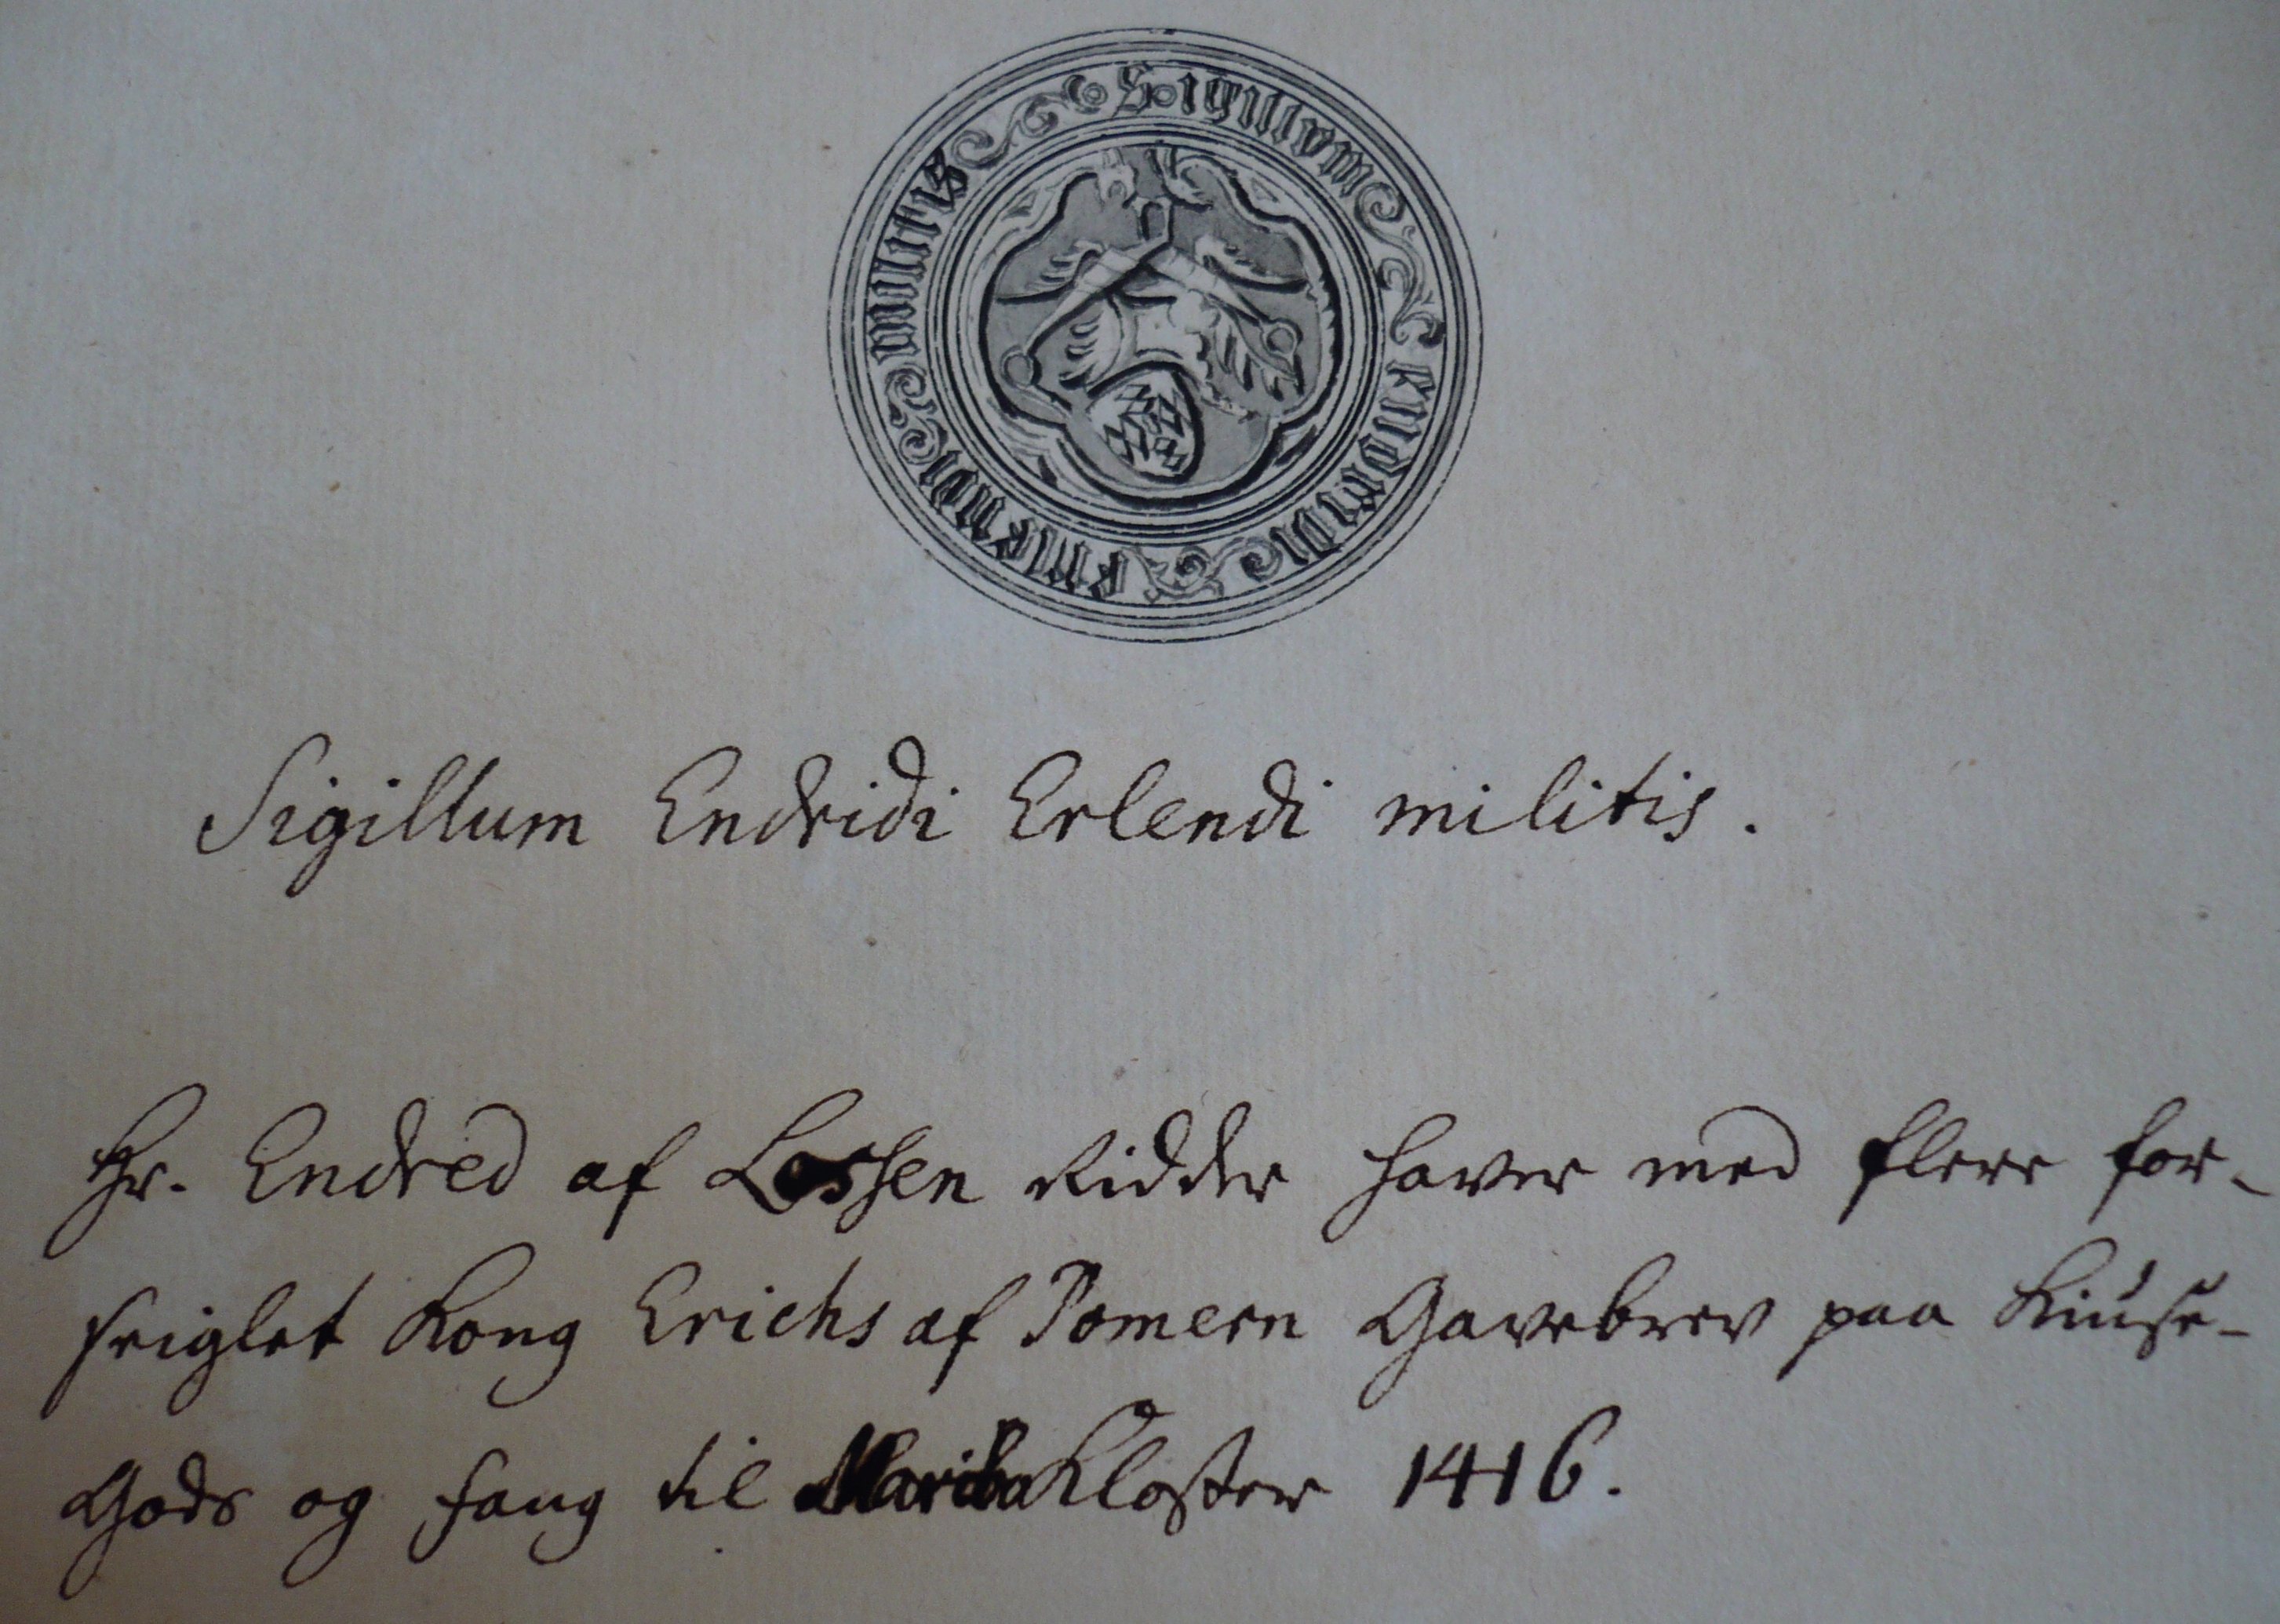 Sigillvm endridi erlendi militis
Sigillum Endridi Erlendi militis.
Hr. Endred af Lossen Ridder haver med flere for-
seiglet Kong Erichs af Pomern Gavebrev paa Kiuse-
Gods og fang til Maribo Kloster 1416.